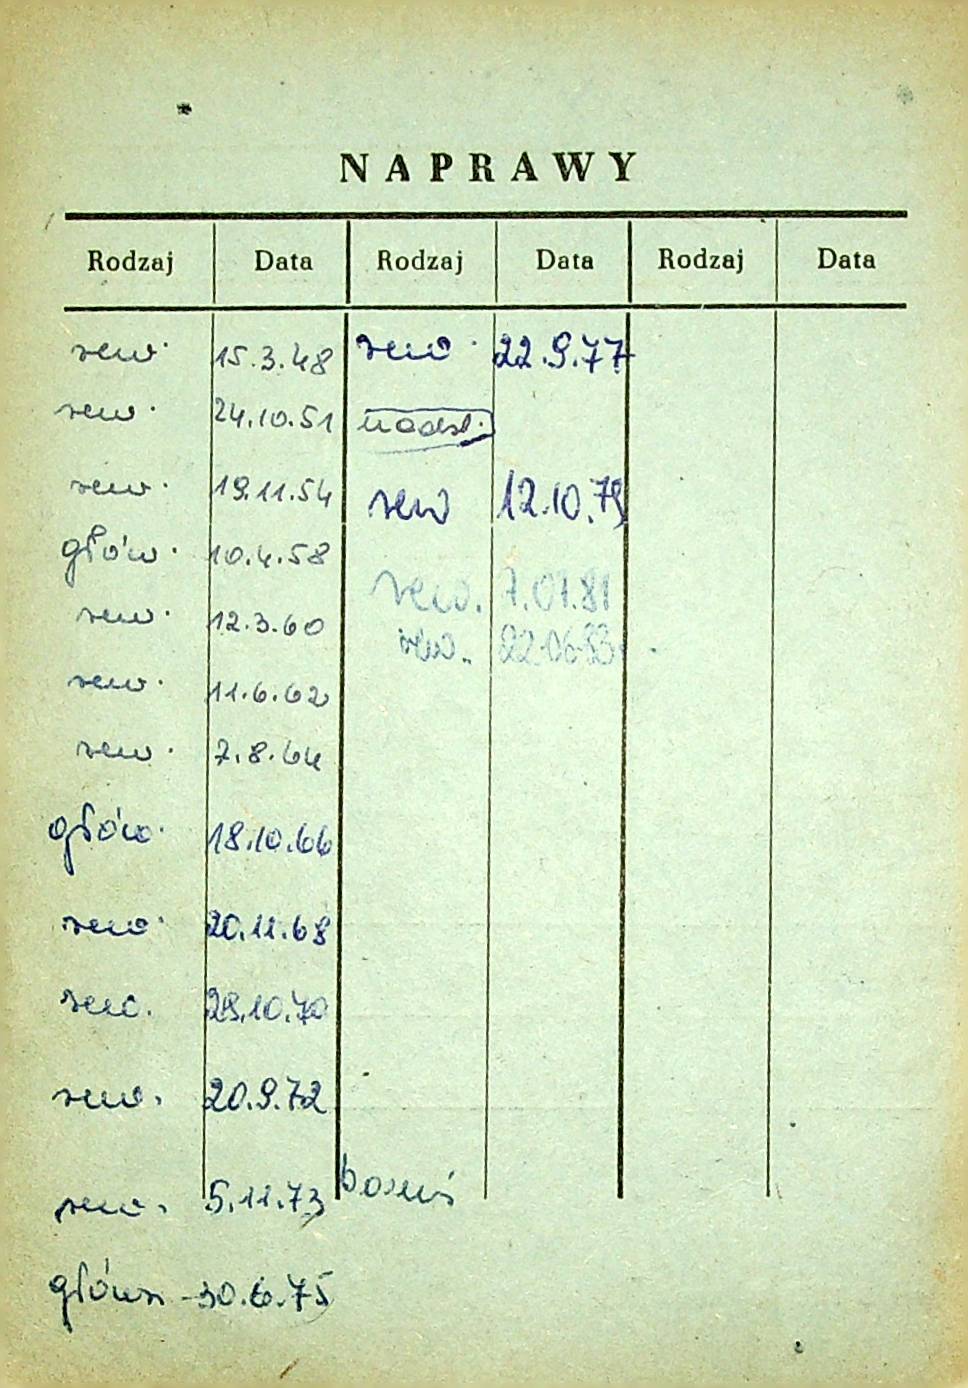 NAPRAWY
Rodzaj Data Rodzaj Data Rodzaj Data
rew. 15.3.48 rew. 22.9.77
rew. 24.10.51 nadst.
rew. 19.11.54 rew 12.10.79
głów. 10.4.58
rew. 12.3.60 rew. 7.01.81
rew. 11.6.62 rew. 22.06.83
rew. 7.8.64
głów. 18.10.66
rew. 20.11.68
rew. 29.10.70
rew. 20.9.72
rew. 5.11.73
główn - 30.6.75